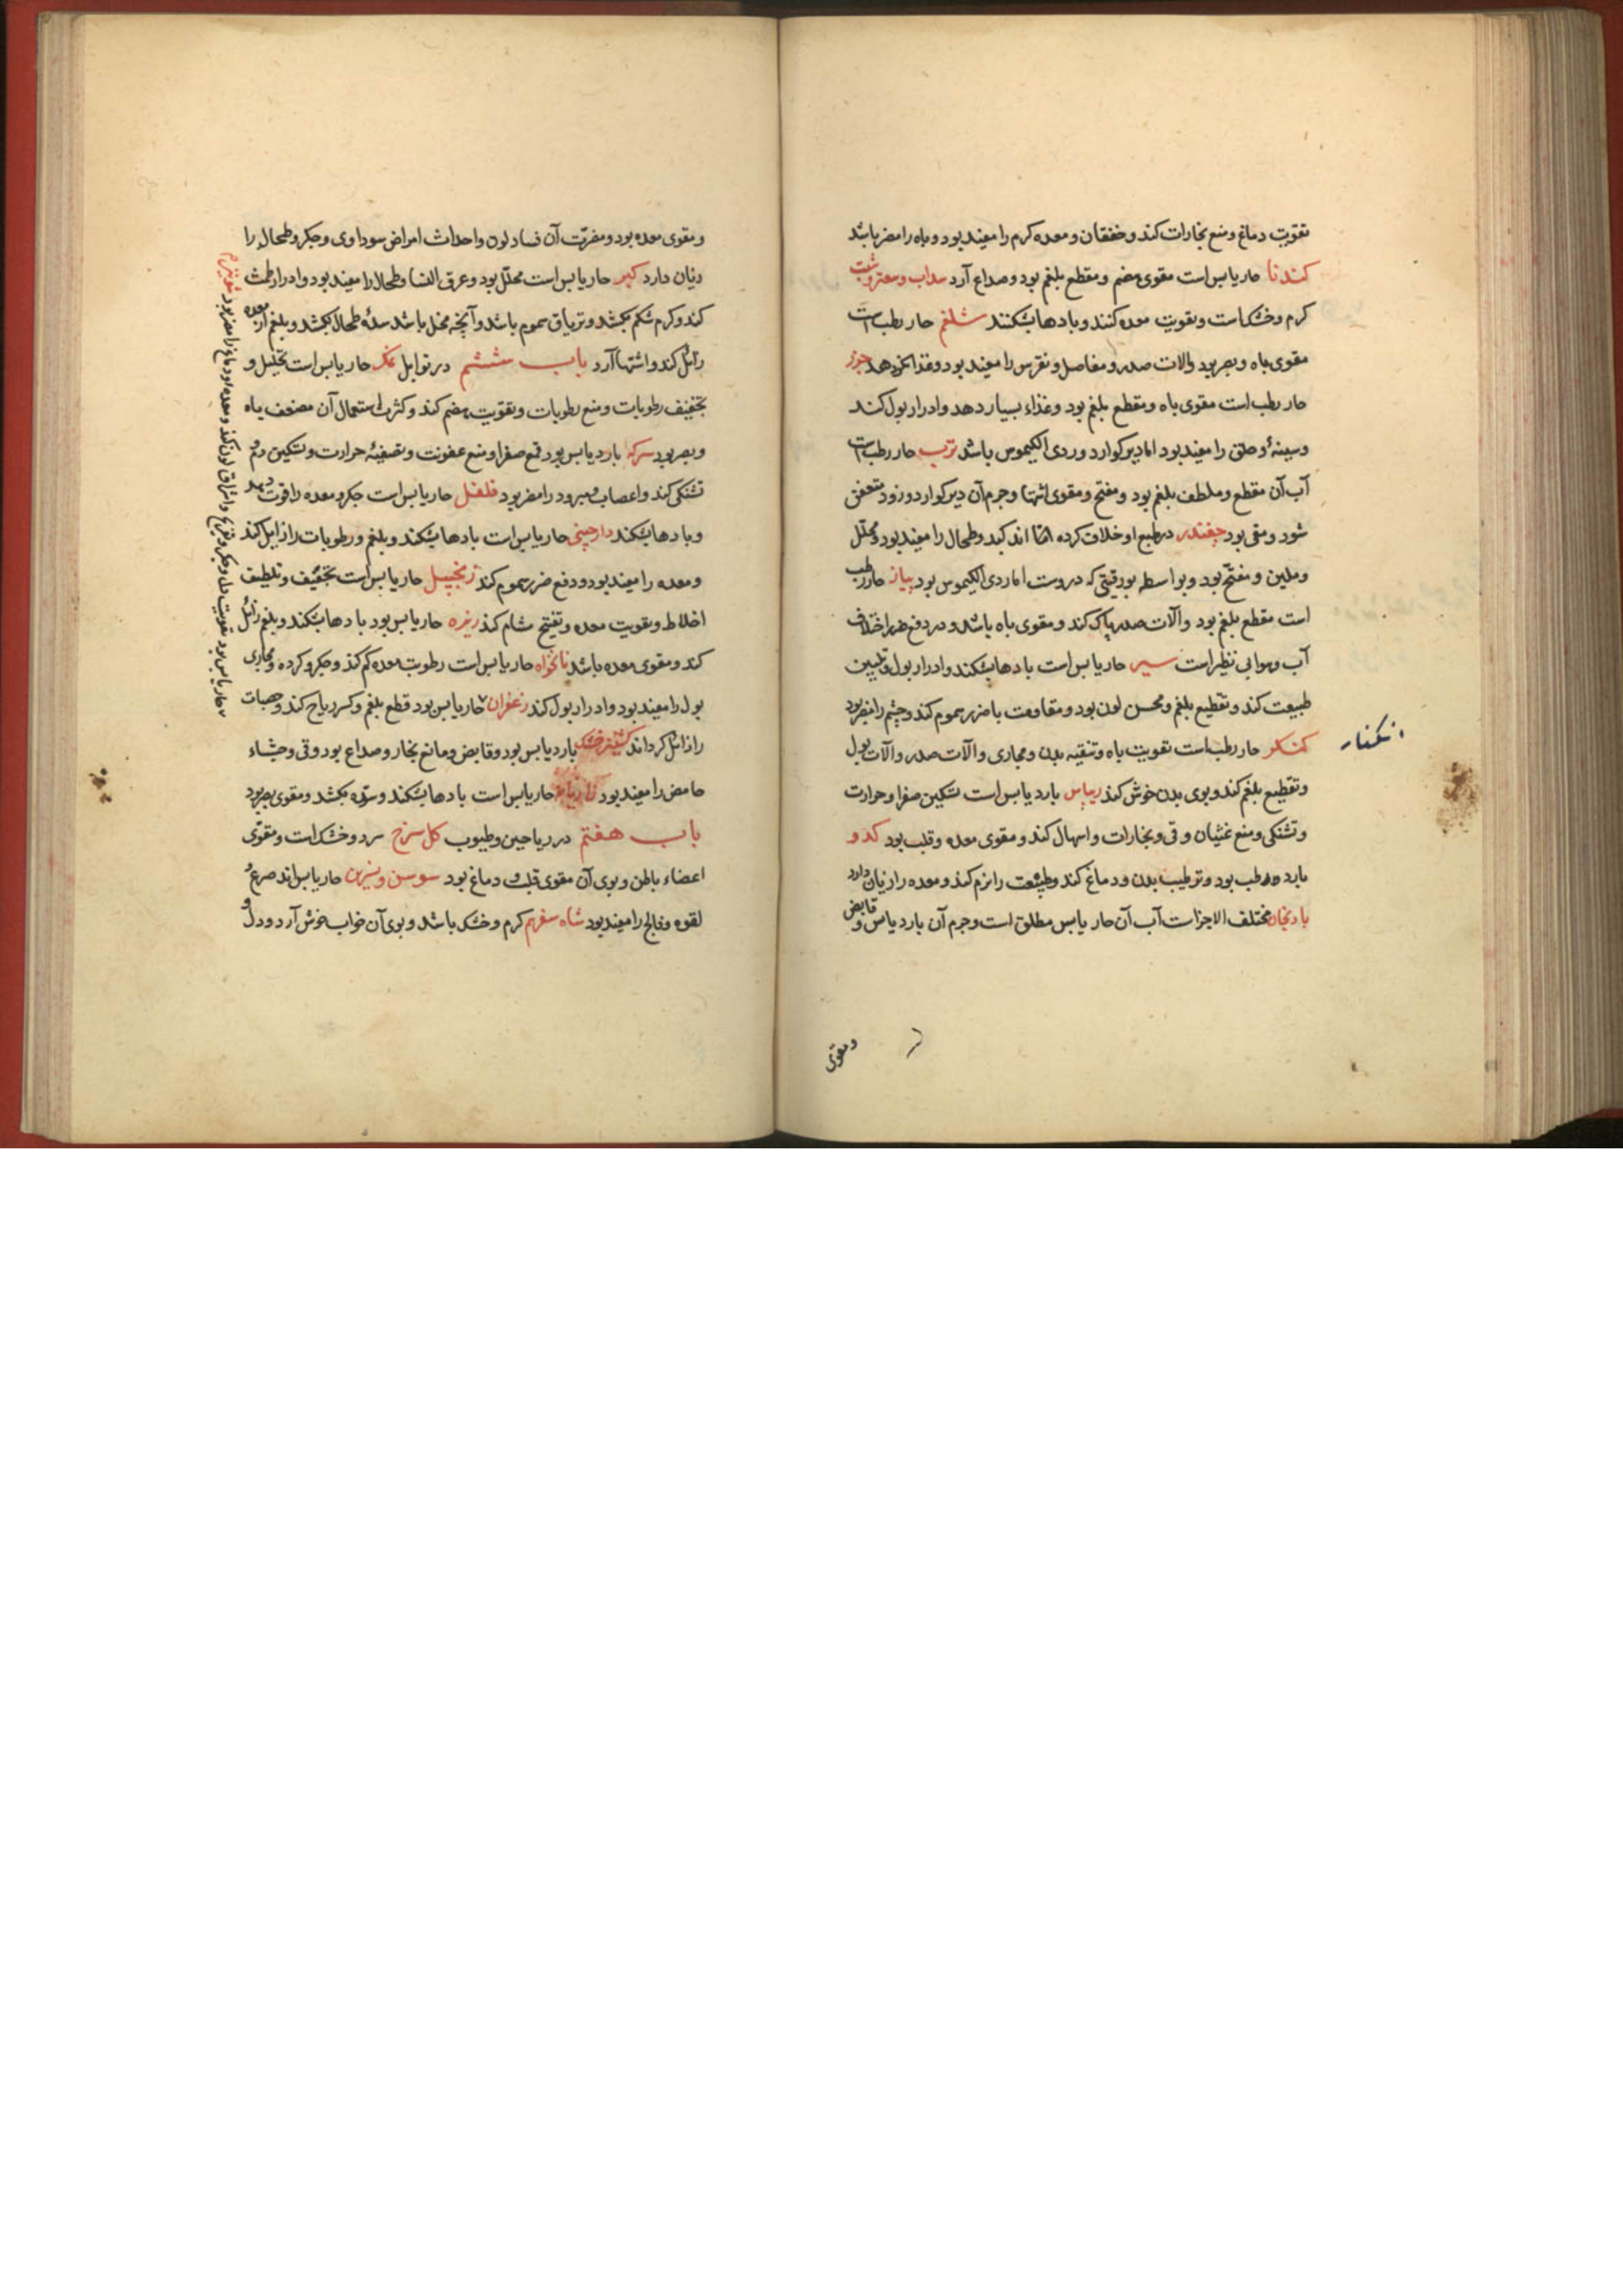 تقویت دماغ و منع بخارات کند و خفقان و معده کرم را مفید بود و باه را مضر باشد
کندنا حار یابس است مقوی هضم و مقطع بلغم بود و صداع آرد سداب و سعتر و شبت
کرم و خشک است و تقویت معده کنند و بادها بشکنند شلغم حار رطب است
مقوی باه و بصر بود والات صدر و مفاصل و نقرس را مفید بود و غذا نکو دهد جزر
حار رطب است مقوی باه و مقطع بلغم بود و غذاء بسیار دهد و ادرار بول کند
و سینه و حلق را مفید بود اما دیر کوارد و ردی الکیموس باشد ترب حار رطب است
آب آن مقطع و ملطف بلغم بود و مفتح و مقوی اشتها و جرم آن دیر کوارد و زود متعفن
شود و مقی بود چغندر در طبع او خلاف کرده اند کبد و طحال را مفید بود و محلل
و ملین و مفتح بود و بواسطه بورقیتی که دروست اما ردی الکیموس بود پیاز حار رطب
است مقطع بلغم بود و آلات صدر پاک کند و مقوی باه باشد و در دفع ضرر اختلاف
آب و هوا بی نظیر است سیر حار یابس است بادها بشکند و ادرار بول و تلیین
طبیعت کند و تقطیع بلغم و محسن لون بود و مقاومت با ضرر سموم کند و چشم را مضر بود
کنکر حار رطب است تقویت باه و تنقیه بدن و مجاری و آلات صدر و آلات بول
و تقطیع بلغم کند و بوی بدن خوش کند ریباس بارد یابس است تسکین صفرا و حرارت
و تشنکی و منع غثیان و قی و بخارات و اسهال کند و مقوی معده و قلب بود کدو
بارد و رطب بود و ترطیب بدن و دماغ کند و طبیعت را نرم کند و معده را زیان دارد
بادنجان مختلف الاجزاست آب آن حار یابس مطلق است و جرم آن بارد یابس و قابض
و مقوی
و مقوی معده بود و مضرت آن فساد لون و احداث امراض سوداوی و جکر و طحال را
زیان دارد کبر حار یابس است محلل بود و عرق النسا و طحال را مفید بود و ادرار طمث
کند و کرم شکم بکشد و تریاق سموم باشد و آنچه مخلل باشد سده طحال بکشد و بلغم از معده
زائل کند و اشتها آرد باب ششم در توابل نمک حار یابس است تحلیل و
تجفیف رطوبات و منع رطوبات و تقویت هضم کند و کثرت استعمال آن مضعف باه
و بصر بود سرکه بارد یابس بود قمع صفرا و منع عفونت و تصفیه حرارت و تسکین دم و
تشنکی کند و اعصاب و مبرود را مضر بود فلفل حار یابس است جکر و معده را قوت دهد
و بادها بشکند دارچینی حار یابس است بادها بشکند و بلغم و رطوبات را زایل کند
و معده را مفید بود و دفع ضرر سموم کند زنجبیل حار یابس است تجفیف و تلطیف
اخلاط و تقویت معده و تفتیح مشام کند زیره حار یابس بود بادها بشکند و بلغم زائل
کند و مقوی معده باشد نانخواه حار یابس است رطوبت معده کم کند و جکر و کرده و مجاری
بول را مفید بود و ادرار بول کند زعفران حار یابس بود قطع بلغم و کسر ریاح کند و حصات
را زائل کرداند کشنیز خشک بارد یابس بود و قابض و مانع بخار و صداع بود و قی و جشاء
حامض را مفید بود رازیانه حار یابس است بادها بشکند و سده بکشد و مقوی بصر بود
باب هفتم در ریاحین و طیوب کل سرخ سرد و خشک است و مقوی
اعضاء باطن و بوی آن مقوی قلب و دماغ بود سوسن و نسرین حار یابس اند صرع و
لقوه و فالج را مفید بود شاه سفرم کرم و خشک باشد و بوی آن خواب خوش آرد و دل و
حار یابس بود تقویت دل و جکر و تفریح و اشراق لون کند و معده بود دماغ را مضر بود